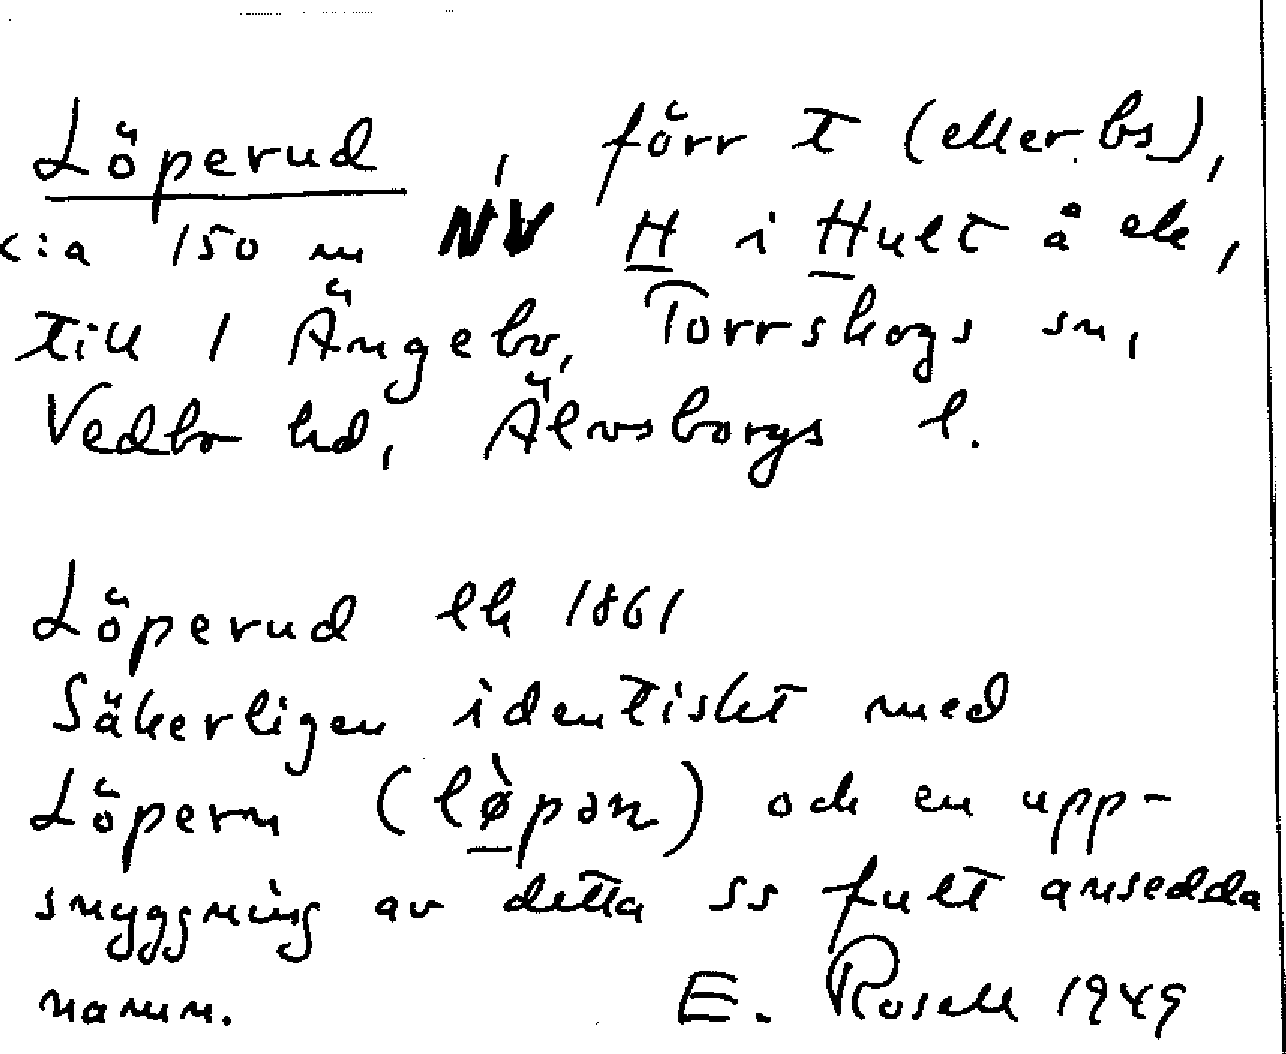 Löperud, förr t (eller bs),
c:a 150 m NV H i Hult å ek,
till 1 Ängebo, Torrskogs sn,
Vedbo hd, Älvsborgs l.
Löperud lh 1861
Säkerligen identiskt med
Löpern (lø̀pən) och en upp-
snyggning av detta ss fult ansedda
namn. E. Rosell 1949